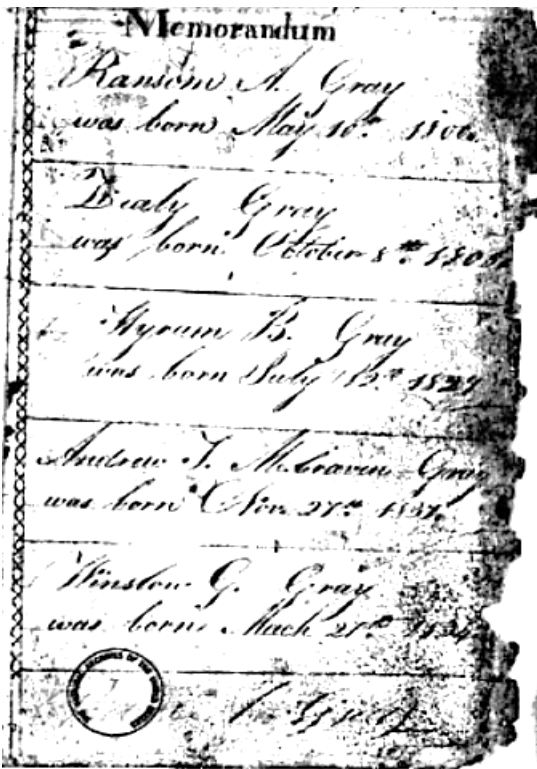 Memorandum
Ransom A. Gray
was born May 10th
Dialy Gray
was born October 8th
Hyrum B. Gray
was born July 1829
Andrew J. McCraven Gray
was born Nov. 27th
Winslow G. Gray
was born Mach 21st
Gray